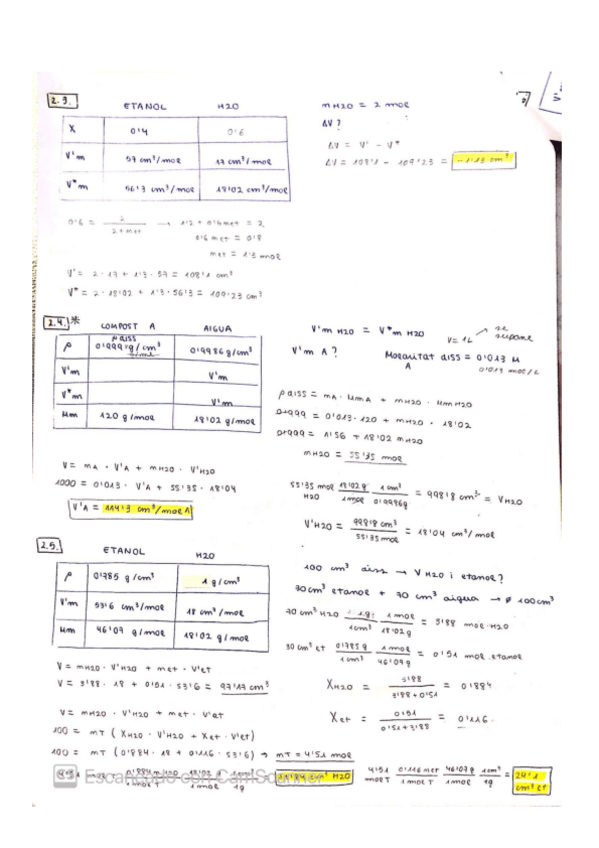 2.3.
ETANOL H2O
X 0'4 0'6
V'm 57 cm³/mol 17 cm³/mol
V*m 56'3 cm³/mol 18'02 cm³/mol
mH2O = 2 mol
ΔV?
ΔV = V' - V*
ΔV = 108'1 - 109'23 = -1'13 cm³
0'6 = 2 / 2 + met → 1'2 + 0'6met = 2
0'6 met = 0'8
met = 1'3 mol
V' = 2 · 17 + 1'3 · 57 = 108'1 cm³
V* = 2 · 18'02 + 1'3 · 56'3 = 109'23 cm³
2.4. *
COMPOST A AIGUA
ρdiss
ρ 0'999 g/cm³ 0'9986 g/cm³
V'm V'm
V*m V'm
Mm 120 g/mol 18'02 g/mol
V'm H2O = V*m H2O
V = 1L → se supone
V'm A? Molaritat diss = 0'013 M
A 0'013 mol/L
ρdiss = mA · MmA + mH2O · MmH2O
0'999 = 0'013 · 120 + mH2O · 18'02
0'999 = 1'56 + 18'02 mH2O
mH2O = 55'35 mol
V = mA · V'A + mH2O · V'H2O
1000 = 0'013 · V'A + 55'35 · 18'04
V'A = 114'3 cm³/mol A
55'35 mol H2O 18'02 g / 1 mol 1 cm³ / 0'9986g = 998'8 cm³ = VH2O
V'H2O = 998'8 cm³ / 55'35 mol = 18'04 cm³/mol
2.5.
ETANOL H2O
ρ 0'785 g/cm³ 1 g/cm³
V'm 53'6 cm³/mol 18 cm³/mol
Mm 46'07 g/mol 18'02 g/mol
100 cm³ diss → V H2O i etanol?
30cm³ etanol + 70 cm³ aigua → ≠ 100cm³
70 cm³ H2O 1g / 1cm³ 1 mol / 18'02g = 3'88 mol H2O
30 cm³ et 0'785g / 1 cm³ 1 mol / 46'07g = 0'51 mol etanol
XH2O = 3'88 / 3'88 + 0'51 = 0'884
Xet = 0'51 / 0'51 + 3'88 = 0'116
V = mH2O · V'H2O + met · V'et
V = 3'88 · 18 + 0'51 · 53'6 = 97'17 cm³
V = mH2O · V'H2O + met · V'et
100 = mT (XH2O · V'H2O + Xet · V'et)
100 = mT (0'884 · 18 + 0'116 · 53'6) → mT = 4'51 mol
4'51 mol T 0'116 met / 1 mol T 46'07g / 1 mol 1 cm³ / 1g = 24'1 cm³ et
Escaneado con CamScanner